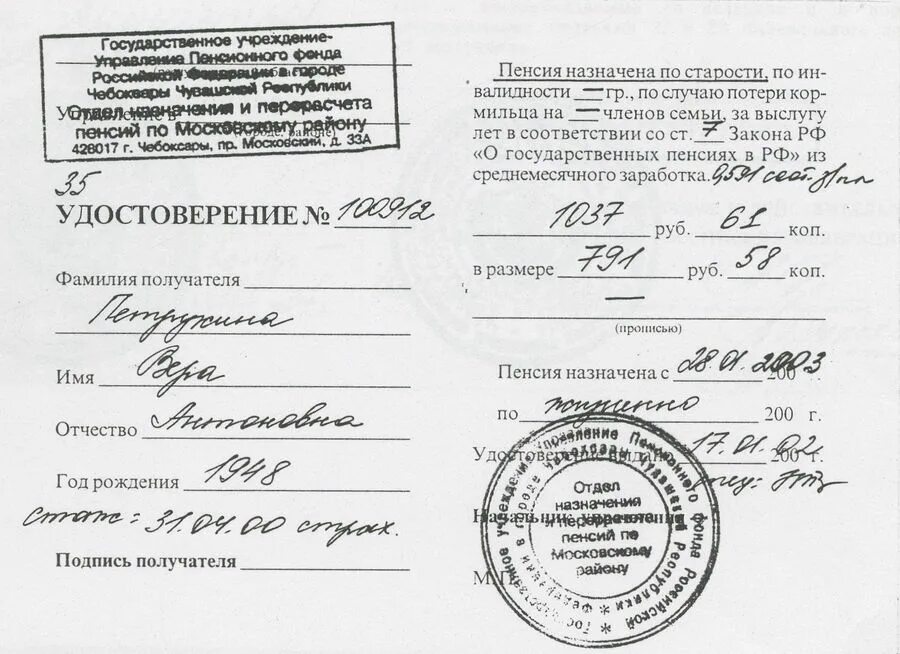 Государственное учреждение-
Управление Пенсионного фонда
Российской Федерации в городе
Чебоксары Чувашской Республики
Отдел назначения и перерасчета
пенсий по Московскому району
428017 г. Чебоксары, пр. Московский, д. 33А
Управление в
(городе, районе)
35
УДОСТОВЕРЕНИЕ № 100912
Фамилия получателя
Петрухина
Имя Вера
Отчество Антоновна
Год рождения 1948
стаж: 31.04.00 страх.
Подпись получателя
Пенсия назначена по старости, по ин-
валидности — гр., по случаю потери кор-
мильца на — членов семьи, за выслугу
лет в соответствии со ст. 7 Закона РФ
«О государственных пенсиях в РФ» из
среднемесячного заработка. 0,591
1037 руб. 61 коп.
в размере 791 руб. 58 коп.
—
(прописью)
Пенсия назначена с 28.01.2003 200 г.
по жизненно 200 г.
Удостоверение выдано 17.01.02 200 г.
Начальник управления
М.П.
Государственное учреждение Управление Пенсионного фонда Российской
Федерации в городе Чебоксары Чувашской Республики
Отдел
назначения
и перерасчета
пенсий по
Московскому
району